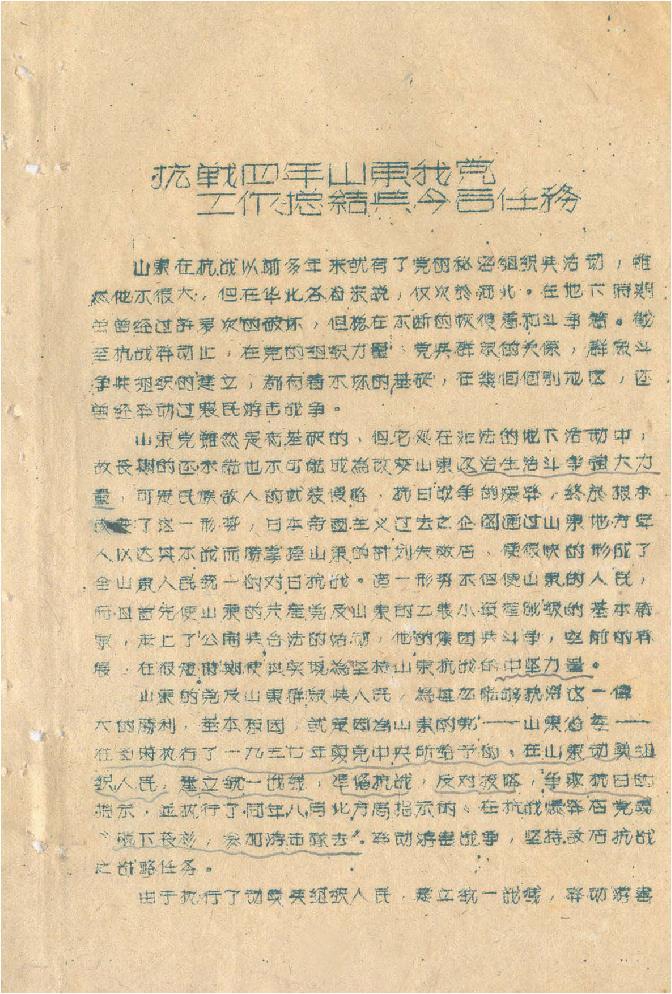 抗战四年山東我党
工作总結與今后任務
山東在抗战以前多年来就有了党的秘密组织與活动，雖
然他不很大，但在华北各省来說，仅次於河北。在地下時期
虽曾经过許多次的破坏，但终在不断的恢復着和斗争着。截
至抗战發动止，在党的组织力量、党與群眾的关係，群眾斗
争與组织的建立，都有着不坏的基础，在幾個個別地區，还
曾经举动过农民游击战争。
山東党雖然是有基础的，但它处在非法的地下活动中，
故長期的还不能也不可能成為改变山東政治生活斗争强大力
量，可是民族敌人的武装侵略，抗日战争的爆發，終於根本
改变了这一形势，日本帝國主义过去之企圖通过山東地方軍
人以达其不战而勝掌握山東的計划失敗后，便很快的形成了
全山東人民统一的对日抗战。這一形势不但使山東的人民，
而且首先使山東的共產党及山東的工農小資產階級的基本群
眾，走上了公開與合法的始动，他的集團與斗争，空前的發
展，在很短時期便與实現為坚持山東抗战的中坚力量。
山東的党及山東群眾與人民，為甚么能够执得这一偉
大的勝利，基本原因，就是因為山東的党——山東省委——
在當時执行了一九三七年夏党中央所給予的、在山東动員组
织人民，建立统一战线，準备抗战，反对投降，争取抗日的
指示，並执行了同年八月北方局指示的、在抗战爆發后党員
“脱下長衫，參加游击隊去”，發动游击战争，坚持敌后抗战
之战略任务。
由于执行了动員與组织人民，建立统一战线，發动游击